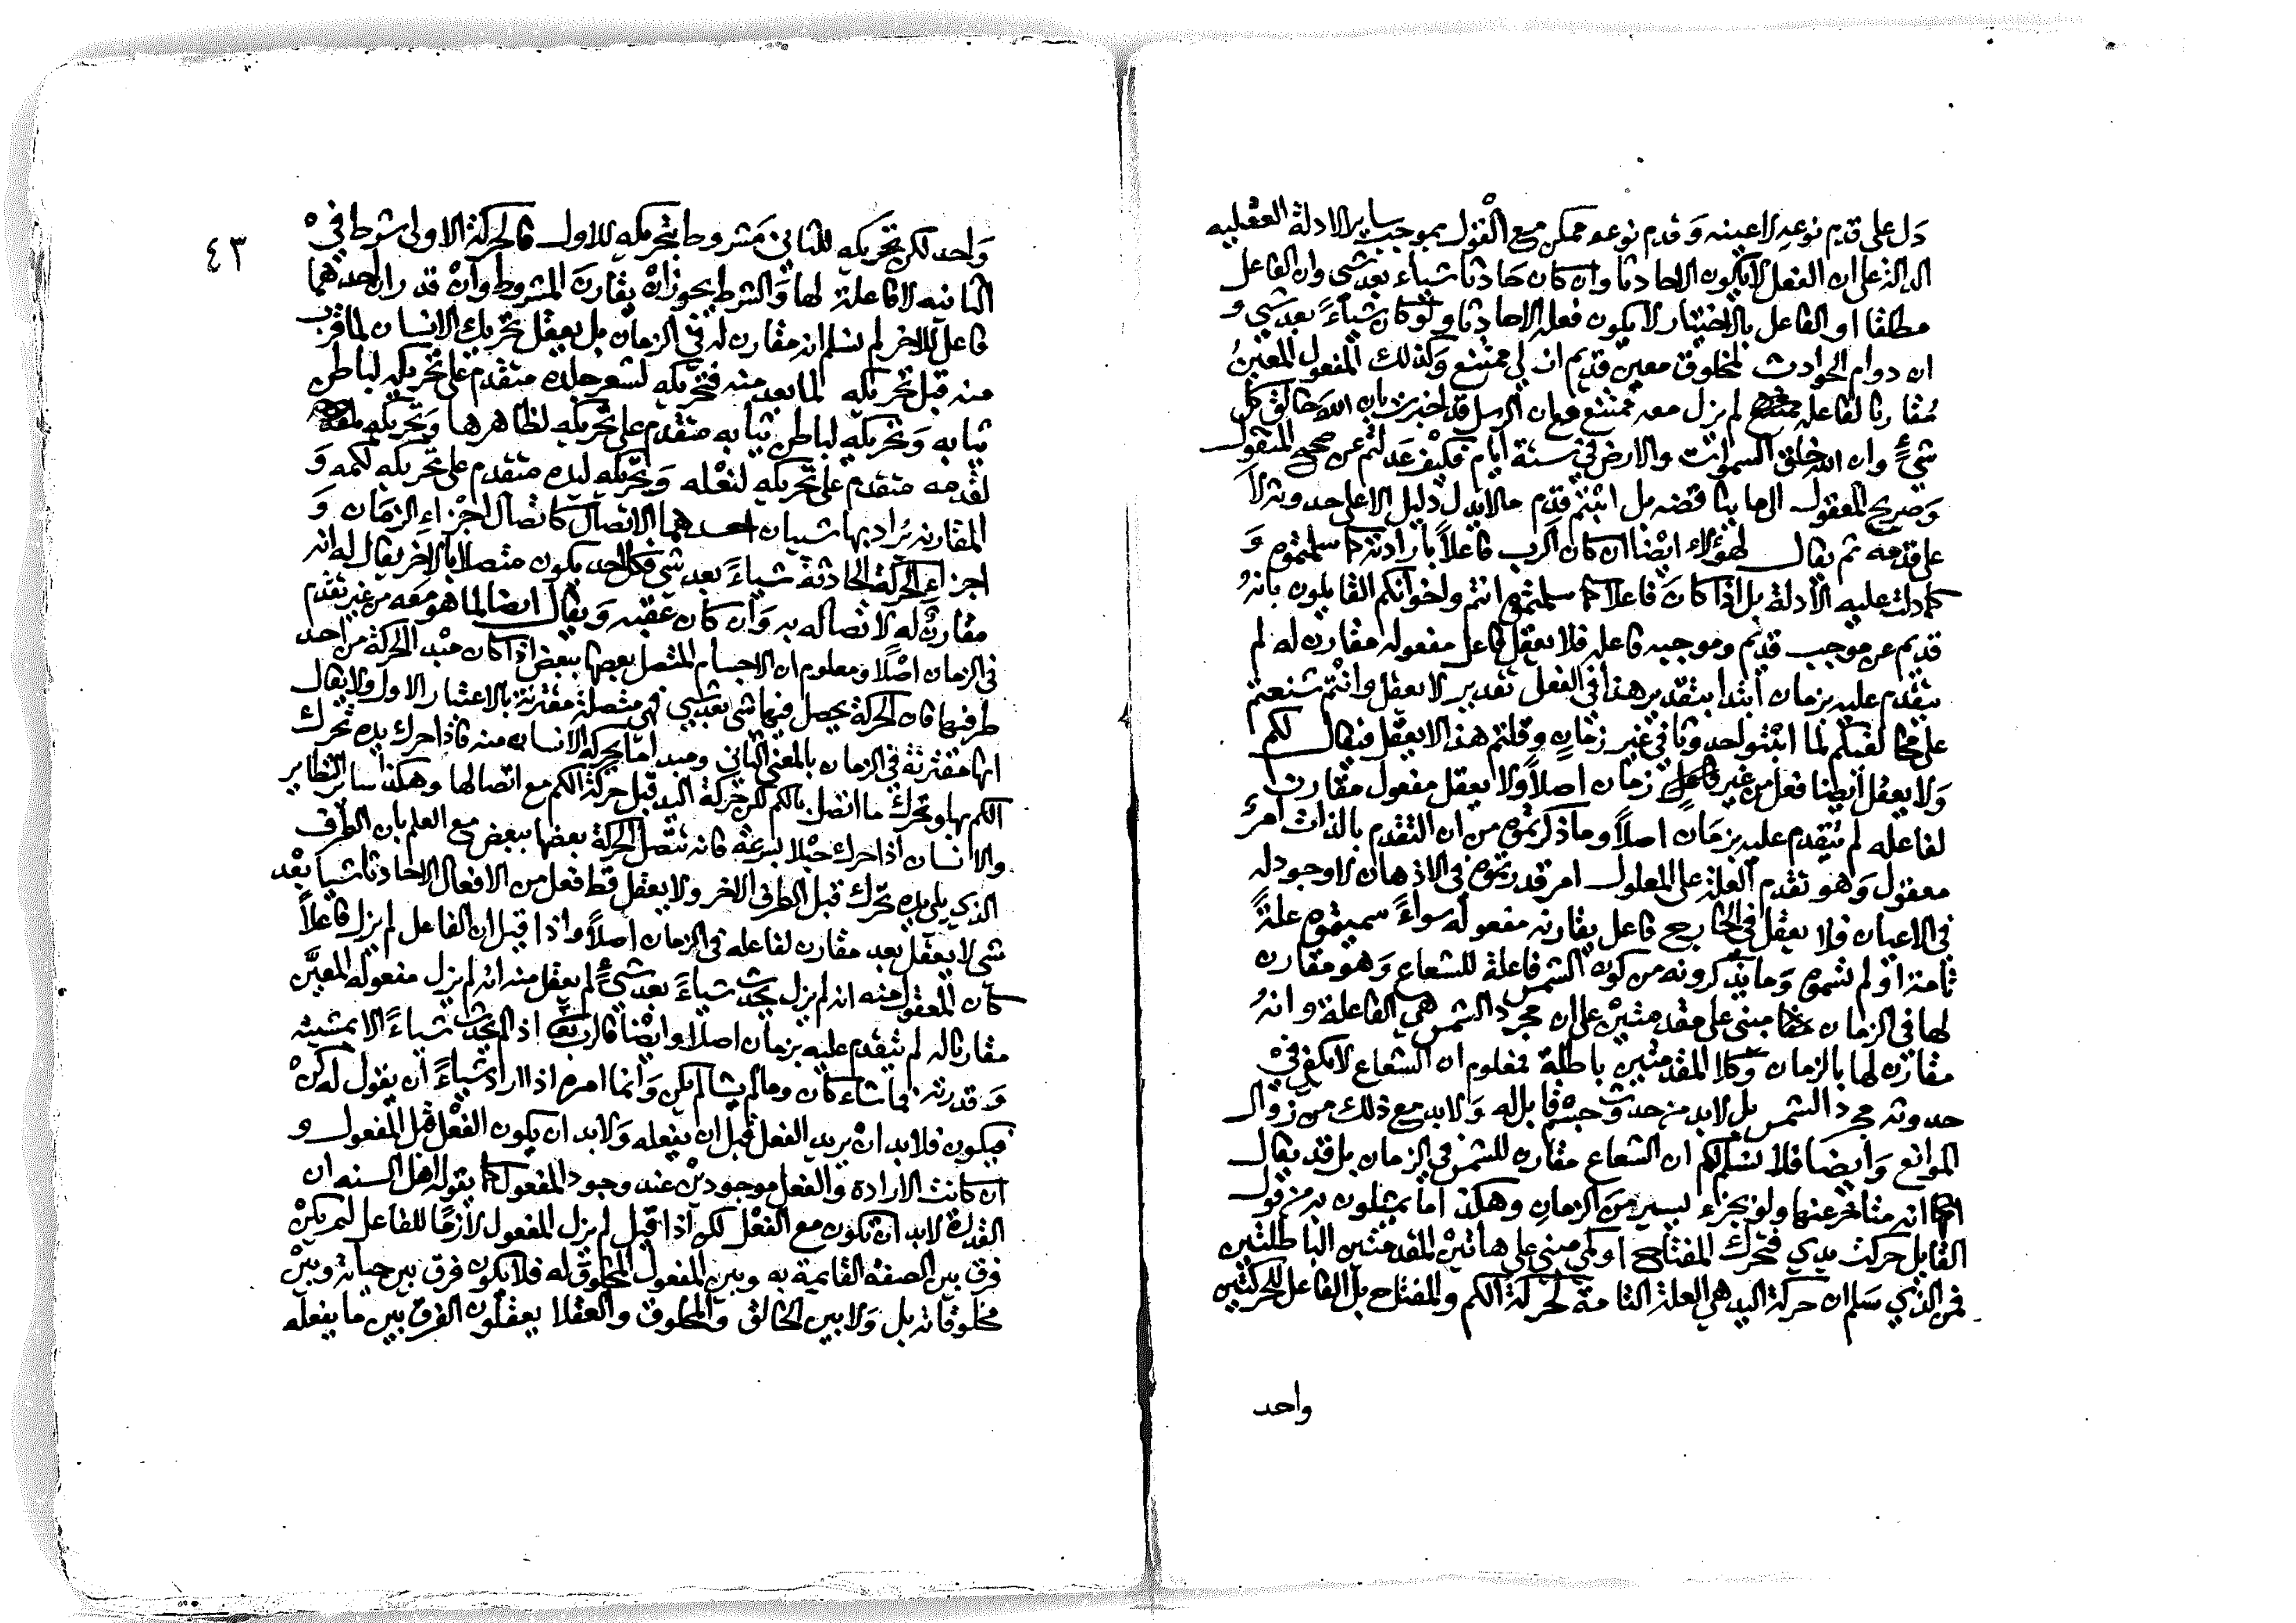 دل على قدم نوعه لا عينه وقدم نوعه ممكن مع القول بموجب ساير الادلة العقليه
الدالة على ان الفعل لا يكون الا حادثا وان كان حادثا شياء بعد شي وان الفاعل
مطلقا او الفاعل بالاختيار لا يكون فعله الا حادثا ولو كان شياءً بعد شي و
ان دوام الحوادث لمخلوق معين قديم ازلي ممتنع وكذلك المفعول المعين
مقارنا لفاعله لم يزل معه ممتنع وان الرسل قد اخبرت بان الله خالق كل
شيءٍ وان الله خلق السموات والارض في ستة ايام فكيف عدلتم عن صحيح المنقول
وصريح المعقول الى ما يناقضه بل اثبتم قدم ما لا يدل دليل الا على حدوثه لا
على قدمه ثم يقال لهؤلاء ايضا ان كان الرب فاعلاً بارادته كما سلمتموه و
كما دلت عليه الادلة بل اذا كان فاعلا كما سلمتموه انتم واخوانكم القايلون بانه
قديم عن موجب قديم وموجبه فاعله فلا يعقل فاعل مفعوله مقارن له لم
يتقدم عليه بزمان ابدا بتقدير هذا في الفعل تقدير لا يعقل وانتم شنعتم
على مخالفيكم لما اثبتوا حدوثا في غير زمان وقلتم هذا لا يعقل فيقال لكم
ولا يعقل ايضا فعل من غير زمان اصلاً ولا يعقل مفعول مقارن
لفاعله لم يتقدم عليه بزمان اصلاً وما ذكرتموه من ان التقدم بالذات امر
معقول وهو تقدم العلة على المعلول امر قدرتموه في الاذهان لا وجود له
في الاعيان فلا يعقل في الخارج فاعل يقارنه مفعوله سواءً سميتموه علةً
تامة او لم تسموه وما يذكرونه من كون الشمس فاعلة للشعاع وهو مقارن
لها في الزمان مبنى على مقدمتين على ان مجرد الشمس هي الفاعلة وانه
مقارن لها بالزمان وكلا المقدمتين باطلة فمعلوم ان الشعاع لا يكفي في
حدوثه مجرد الشمس بل لا بد من حدوث جسم قابل له ولا بد مع ذلك من زوال
الموانع وايضا فلا نسلم لكم ان الشعاع مقارن للشمس في الزمان بل قد يقال
انه متاخر عنها ولو بجزء يسير من الزمان وهكذا ما يمثلون به من قول
القايل حركت يدي فتحرك المفتاح او كمي مبني على هاتين المقدمتين الباطلتين
فمن الذي سلم ان حركة اليد هي العلة التامة لحركة الكم والمفتاح بل الفاعل للحركتين
واحد
٤٣
واحد لكن تحريكه للثاني مشروط بتحريكه للاول فالحركة الاولى شرط في
الثانيه لا فاعلة لها والشرط يجوز ان يقارن المشروط وان قدر ان احدهما
فاعل للاخر لم نسلم انه مقارن له في الزمان بل يعقل تحريك الانسان لما قرب
منه قبل تحريكه لما بعد منه فتحريكه لشعر جلده متقدم على تحريكه لباطن
ثيابه وتحريكه لباطن ثيابه متقدم على تحريكه لظاهرها وتحريكه
لقدمه متقدم على تحريكه لنعله وتحريكه ليده متقدم على تحريكه لكمه و
المقارنه يراد بها شيئان احدهما الاتصال كاتصال اجزاء الزمان و
اجزاء الحركة الحادثة شياءً بعد شي فكل واحد يكون متصلا بالاخر يقال له انه
مقارن له لاتصاله به وان كان عقبه ويقال ايضا لما هو معه من غير تقدم
في الزمان اصلاً ومعلوم ان الاجسام المتصل بعضها ببعض اذا كان مبدا الحركة من احد
طرفيها فان الحركة يحصل فيها شي بعد شي فهي متصلة مقترنة بالاعتبار الاول ولا يقال
انها مقترنة في الزمان بالمعنى الثاني ومبدا ما يحركه الانسان منه فاذا حرك يده تحرك
الكم بها وتحرك ما اتصل بالكم لكن حركة اليد قبل حركة الكم مع اتصالها وهكذا سائر النظاير
والانسان اذا حرك حبلا بسرعة فانه تتصل الحركة بعضها ببعض مع العلم بان الطرف
الذي يلي يده تحرك قبل الطرف الاخر ولا يعقل قط فعل من الافعال الا حادثا شيا بعد
شي لا يعقل بعد مقارن لفاعله في الزمان اصلاً واذا قيل ان الفاعل لم يزل فاعلاً
كان المعقول منه انه لم يزل يحدث شياءً بعد شيءٍ لم يعقل منه انه لم يزل مفعوله المعين
مقارنا له لم يتقدم عليه بزمان اصلا وايضا فالرب تعالى اذا لم يحدث شياءً الا بمشيته
وقدرته فما شاء كان وما لم يشا لم يكن وانما امره اذا اراد شياءً ان يقول له كن
فيكون فلا بد ان يريد الفعل قبل ان يفعله ولا بد ان يكون الفعل قبل المفعول و
ان كانت الارادة والفعل موجودين عند وجود المفعول كما يقوله اهل السنه ان
القدرة لا بد ان تكون مع الفعل لكن اذا قيل لم يزل المفعول لازما للفاعل لم يكن
فرق بين الصفة القايمة به وبين المفعول المخلوق له فلا يكون فرق بين حياته وبين
مخلوقاته بل ولا بين الخالق والمخلوق والعقلا يعقلون الفرق بين ما يفعله